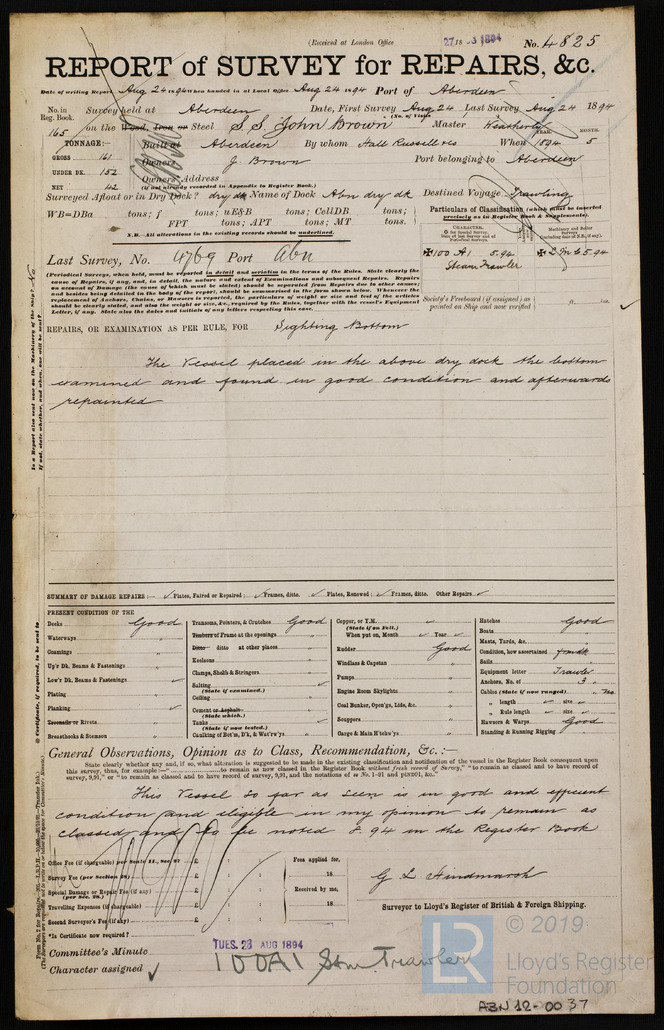 (Received at London Office 27 18 1894 No. 4825
REPORT of SURVEY for REPAIRS, &c.
Date of writing Report Aug 24 1894 When handed in at Local Office Aug 24 1894 Port of Aberdeen
No. in Reg. Book. Survey held at Aberdeen Date, First Survey Aug 24 Last Survey Aug 24 1894
165 on the Wood, Iron or Steel S.S. John Brown (No. of Visits Master Weatherly
TONNAGE:— Built at Aberdeen By whom Hall Russell & Co When 1894 YEAR. MONTH. 5
GROSS 161 Owners J. Brown Port belonging to Aberdeen
UNDER DK. 152 Owners' Address
NET 42 (if not already recorded in Appendix to Register Book.)
Surveyed Afloat or in Dry Dock? dry dk Name of Dock Abn dry dk Destined Voyage Trawling
WB=DBa tons; f tons; uE&B tons; CellDB tons;
FPT tons; APT tons; MT tons.
N.B.—All alterations in the existing records should be underlined.
Particulars of Classification (which must be inserted precisely as in Register Book & Supplements).
CHARACTER.
✠ for Special Survey, Date of last Survey and of Periodical Surveys.
Machinery and Boiler Surveys (including date of N.B., if any).
✠100 A1 5.94
Steam Trawler
✠LMC 5.94
Last Survey, No. 4769 Port Abn
(Periodical Surveys, when held, must be reported in detail and seriatim in the terms of the Rules. State clearly the
cause of Repairs, if any, and, in detail, the nature and extent of Examinations and subsequent Repairs. Repairs
on account of Damage (the cause of which must be stated) should be separated from Repairs due to other causes;
and besides being detailed in the body of the report, should be summarised in the form shown below. Whenever the
replacement of Anchors, Chains, or Hawsers is reported, the particulars of weight or size and test of the articles
should be clearly stated, and also the weight or size, &c., required by the Rules, together with the vessel's Equipment
Letter, if any. State also the dates and initials of any letters respecting this case.
Society's Freeboard (if assigned) as painted on Ship and now verified ft. ins.
REPAIRS, OR EXAMINATION AS PER RULE, FOR Sighting Bottom
The Vessel placed in the above dry dock the bottom
examined and found in good condition and afterwards
repainted
SUMMARY OF DAMAGE REPAIRS:— Plates, Faired or Repaired; Frames, ditto. Plates, Renewed; Frames, ditto. Other Repairs
PRESENT CONDITION OF THE
Decks Good
Waterways "
Coamings "
Up'r Dk. Beams & Fastenings "
Low'r Dk. Beams & Fastenings
Plating "
Planking
Treenails or Rivets "
Breasthooks & Stemson "
Transoms, Pointers, & Crutches Good
Timbers of Frame at the openings "
Ditto ditto at other places "
Keelsons "
Clamps, Shelfs & Stringers "
Salting (State if examined.)
Ceiling "
Cement or Asphalt (State which.) "
Tanks (State if now tested.)
Caulking of Bot'm, D'k, & Wat'rw'ys "
Copper, or Y.M. (State if on Felt.)
When put on, Month Year
Rudder Good
Windlass & Capstan "
Pumps "
Engine Room Skylights "
Coal Bunker, Open'gs, Lids, &c. "
Scuppers "
Cargo & Main H'tchw'ys "
Hatches Good
Boats "
Masts, Yards, &c. "
Condition, how ascertained from dk
Sails
Equipment letter Trawler
Anchors, No. of 3
Cables (State if now ranged) " No
" length size
" Rule length size
Hawsers & Warps Good
Standing & Running Rigging "
General Observations, Opinion as to Class, Recommendation, &c. :—
State clearly whether any, if so, what alteration is suggested to be made in the existing classification and notification of the vessel in the Register Book consequent upon
this survey, thus, for example :—"..............to remain as now classed in the Register Book without fresh record of Survey," "to remain as classed and to have record of
survey, 9,91," or "to remain as classed and to have record of survey, 9,91, and the notations of ss No. 1-91 and ptND91, &c."
This Vessel so far as seen is in good and efficient
condition and eligible in my opinion to remain as
classed and to be noted 8.94 in the Register Book
Office Fee (if chargeable) per Scale II., Sec. 27) £ : : Fees applied for,
Survey Fee (per Section 28) £ : : 18
Special Damage or Repair Fee (if any) (per Sec. 28.) £ : : Received by me,
Travelling Expenses (if chargeable) £ : : 18
Second Surveyor's Fee (if any) £ : :
G L Hindmarsh
Surveyor to Lloyd's Register of British & Foreign Shipping.
*Is Certificate now required?
Committee's Minute TUES. 28 AUG 1894
Character assigned 100A1 Stm. Trawler
Is a Report also sent now on the Machinery of the Ship? No
If not, state whether, and when, one will be sent?
© Certificate, if required, to be sent to
LR © 2019
Lloyd's Register
Foundation
ABN 12-0037